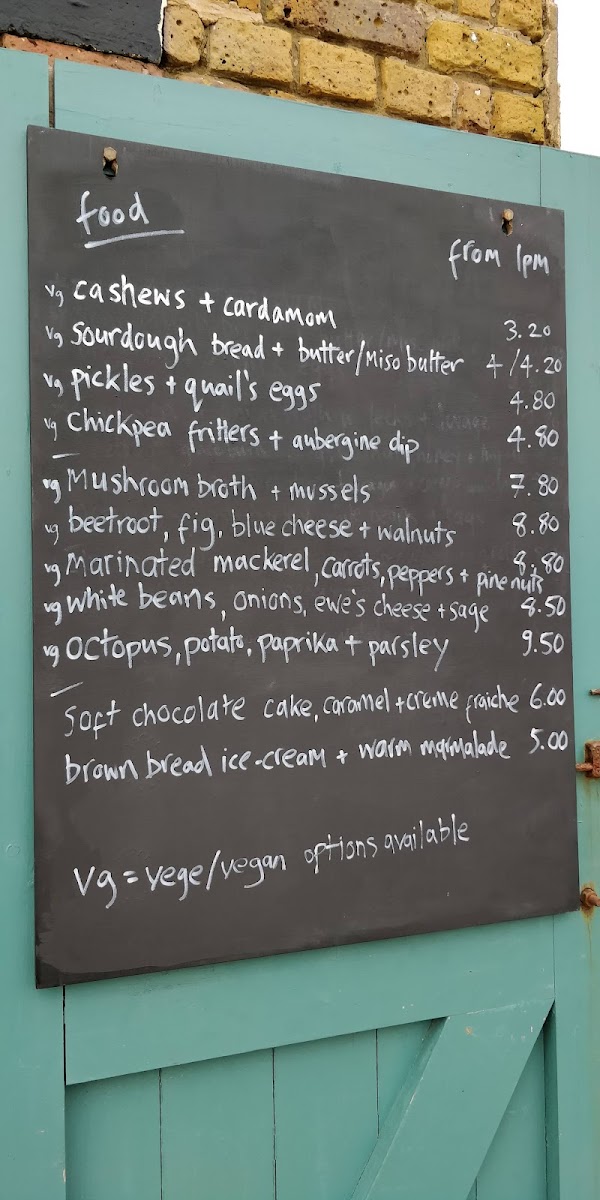 food
from 1pm
vg cashews + cardamom 3.20
vg sourdough bread + butter/Miso butter 4/4.20
vg pickles + quail's eggs 4.80
vg chickpea fritters + aubergine dip 4.80
vg Mushroom broth + mussels 7.80
vg beetroot, fig, blue cheese + walnuts 8.80
vg Marinated mackerel, carrots, peppers + pine nuts 8.80
vg white beans, onions, ewe's cheese + sage 8.50
vg octopus, potato, paprika + parsley 9.50
Soft chocolate cake, caramel + creme fraiche 6.00
brown bread ice-cream + warm marmalade 5.00
Vg = vege/vegan options available